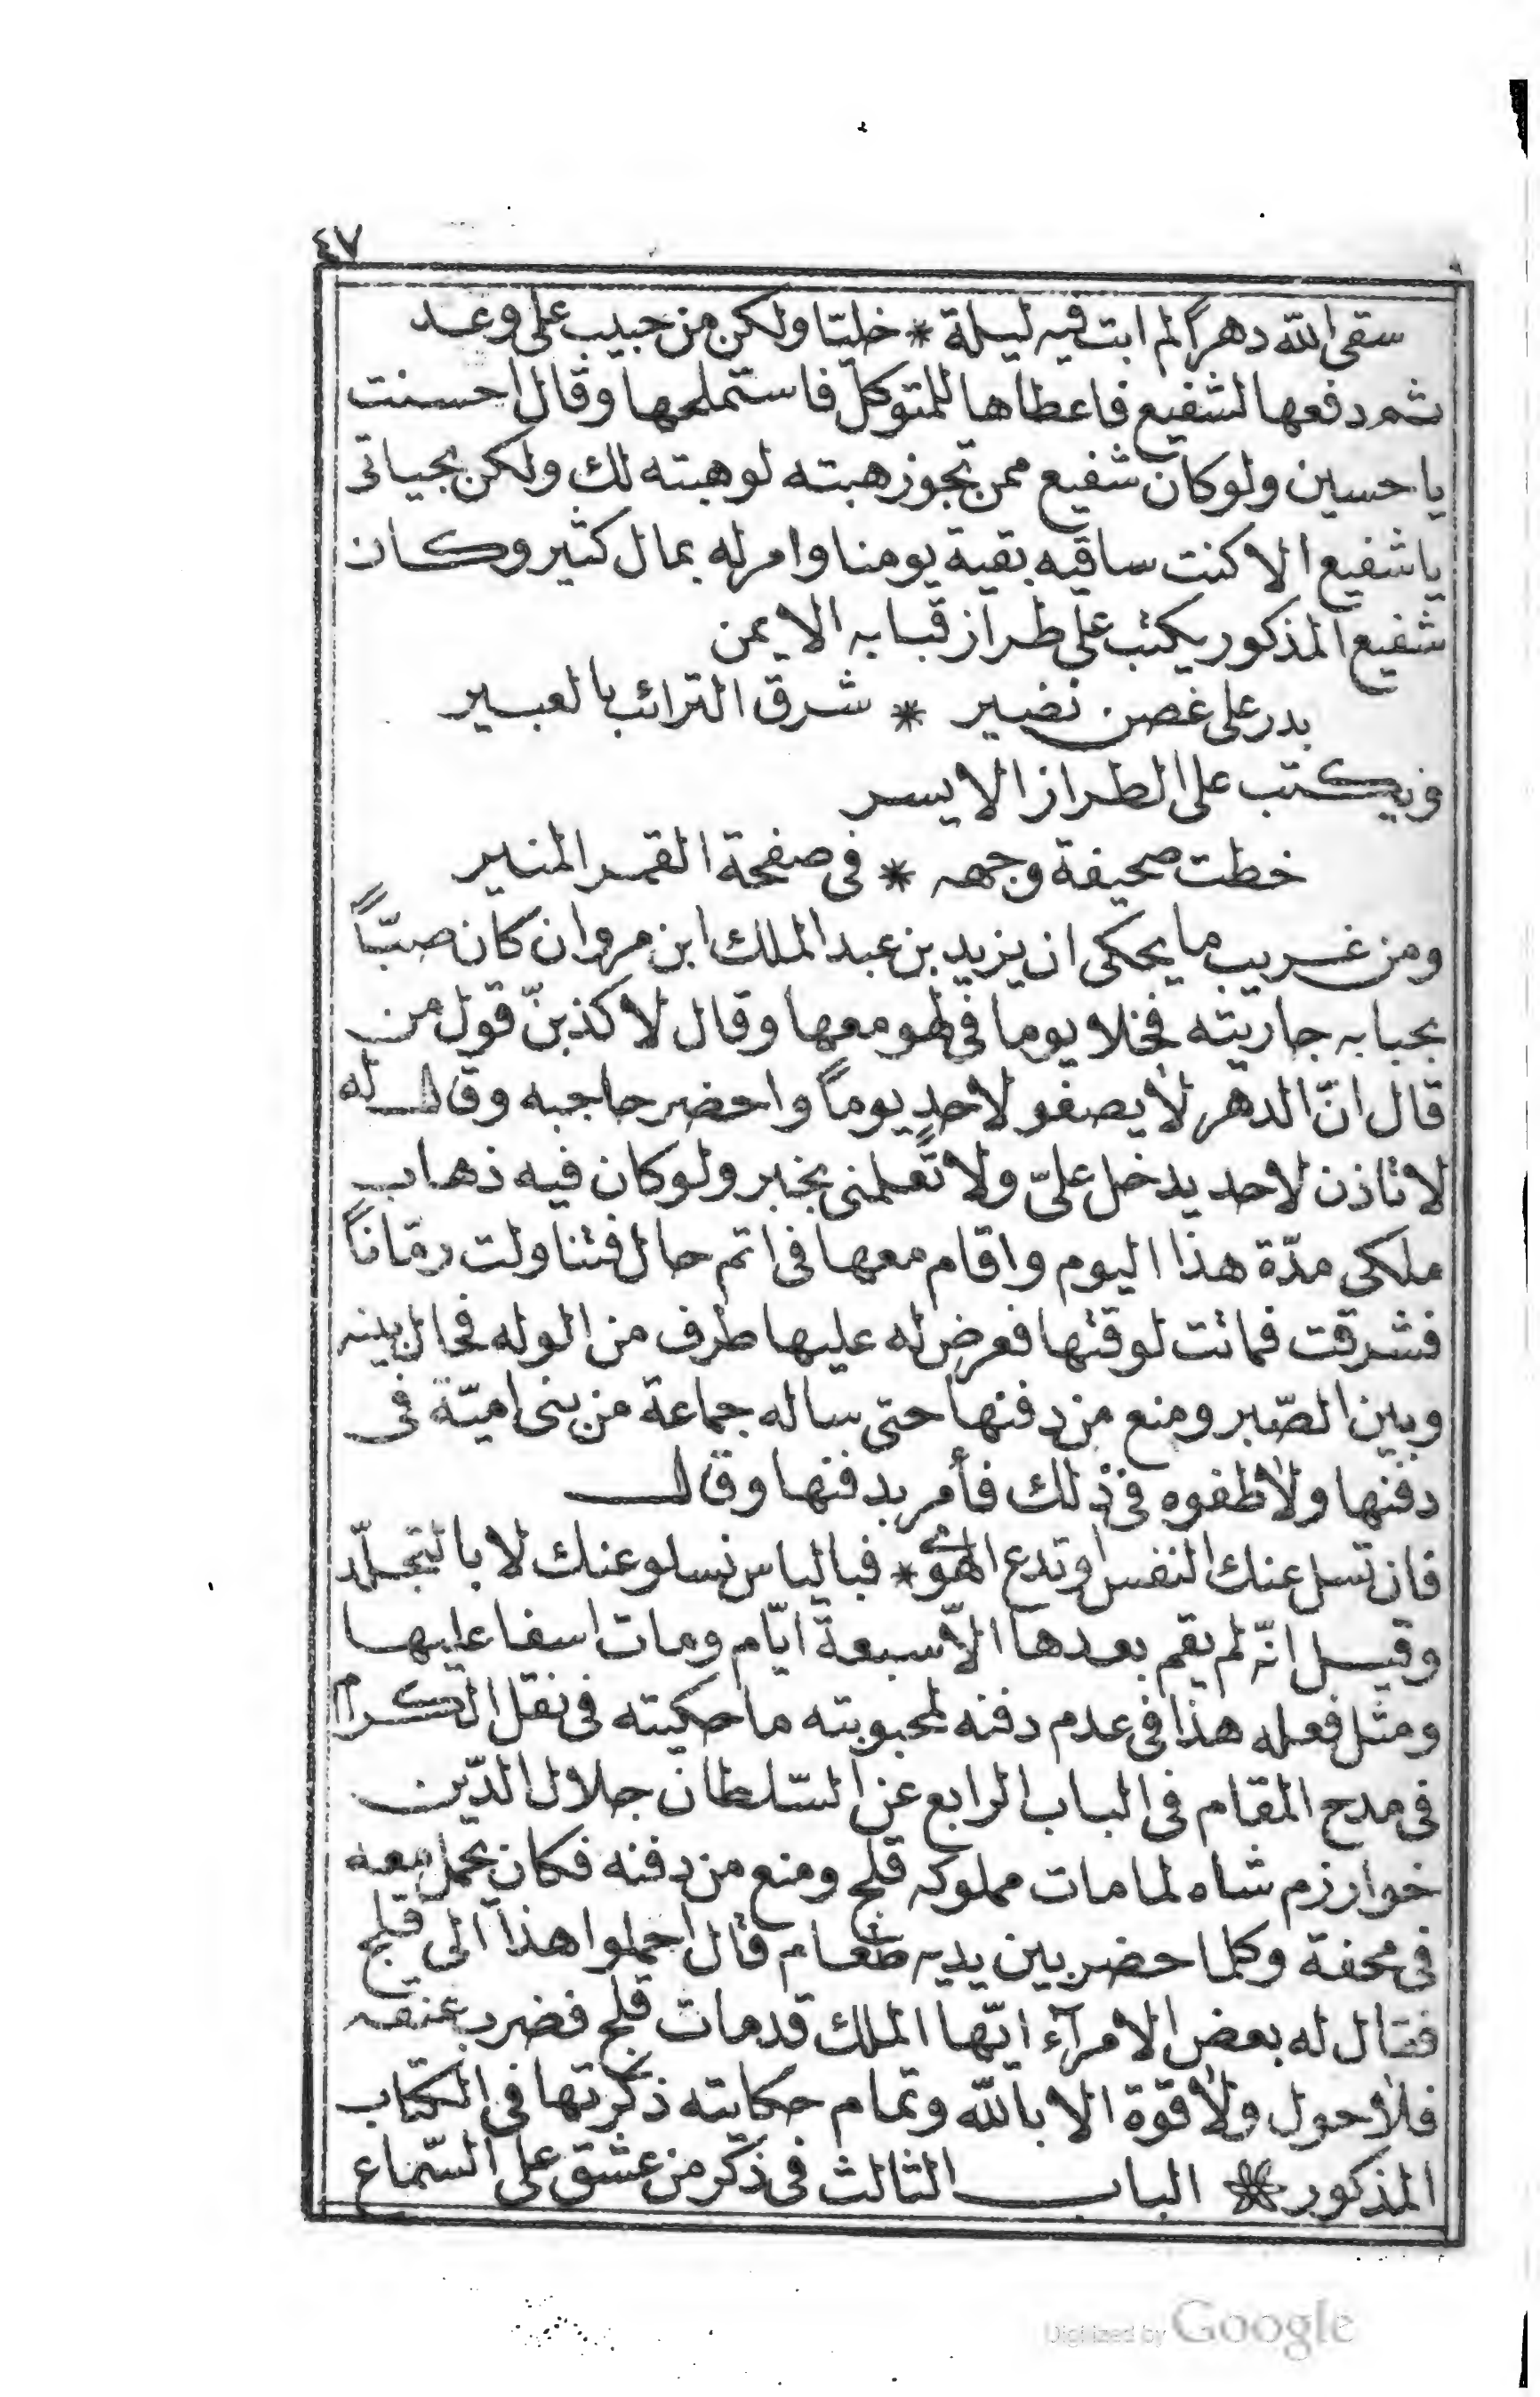 ٤٧
سقى الله دهراً لم ابت فيه ليلة * خليّا ولكن من حبيب على وعد
ثم دفعها لشفيع فاعطاها للمتوكل فاستملحها وقال احسنت
يا حسين ولو كان شفيع ممن تجوز هبته لوهبته لك ولكن بحياتى
يا شفيع الا كنت ساقيه بقية يومنا وامر له بمال كثير وكان
شفيع المذكور يكتب على طراز قبابه الايمن
بدر على غصن نضير * شرق الترائب بالعبير
ويكتب على الطراز الايسر
خطت صحيفة وجهه * فى صفحة القمر المنير
ومن غريب ما يحكى ان يزيد بن عبد الملك ابن مروان كان صبّاً
بحبابه جاريته فخلا يوما فى لهو معها وقال لاكذبنّ قول من
قال انّ الدهر لا يصفو لاحدٍ يوماً واحضر حاجبه وقال له
لا تاذن لاحد يدخل علىّ ولا تعلمنى بخبر ولو كان فيه ذهاب
ملكى مدّة هذا اليوم واقام معها فى اتم حال فتناولت رمّاناً
فشرقت فماتت لوقتها فعرض له عليها طرف من الوله فحال بينه
وبين الصّبر ومنع من دفنها حتى ساله جماعة من بنى اميّة فى
دفنها ولاطفوه فى ذلك فأمر بدفنها وقال
فان تسل عنك النفس او تدع الهوى * فبالياس نسلو عنك لا بالتجلّد
وقيل انّه لم يقم بعدها الّا سبعة ايّام ومات اسفا عليها
ومثل فعله هذا فى عدم دفنه لمحبوبته ما حكيته فى نقل الكرام
فى مدح المقام فى الباب الرابع عن السّلطان جلال الدّين
خوارزم شاه لما مات مملوكه قلج ومنع من دفنه فكان يحمل معه
فى محفة وكلما حضر بين يديه طعام قال احملوا هذا الى قلج
فقال له بعض الامرآء ايّها الملك قد مات قلج فضرب عنقه
فلا حول ولا قوة الا بالله وتمام حكايته ذكرتها فى الكتاب
المذكور * الباب الثالث فى ذكر من عشق على السّماع
Digitized by Google